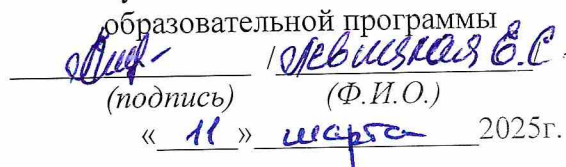 образовательной программы
/ Левицкая Е.С
(подпись) (Ф.И.О.)
« 11 » марта 2025г.